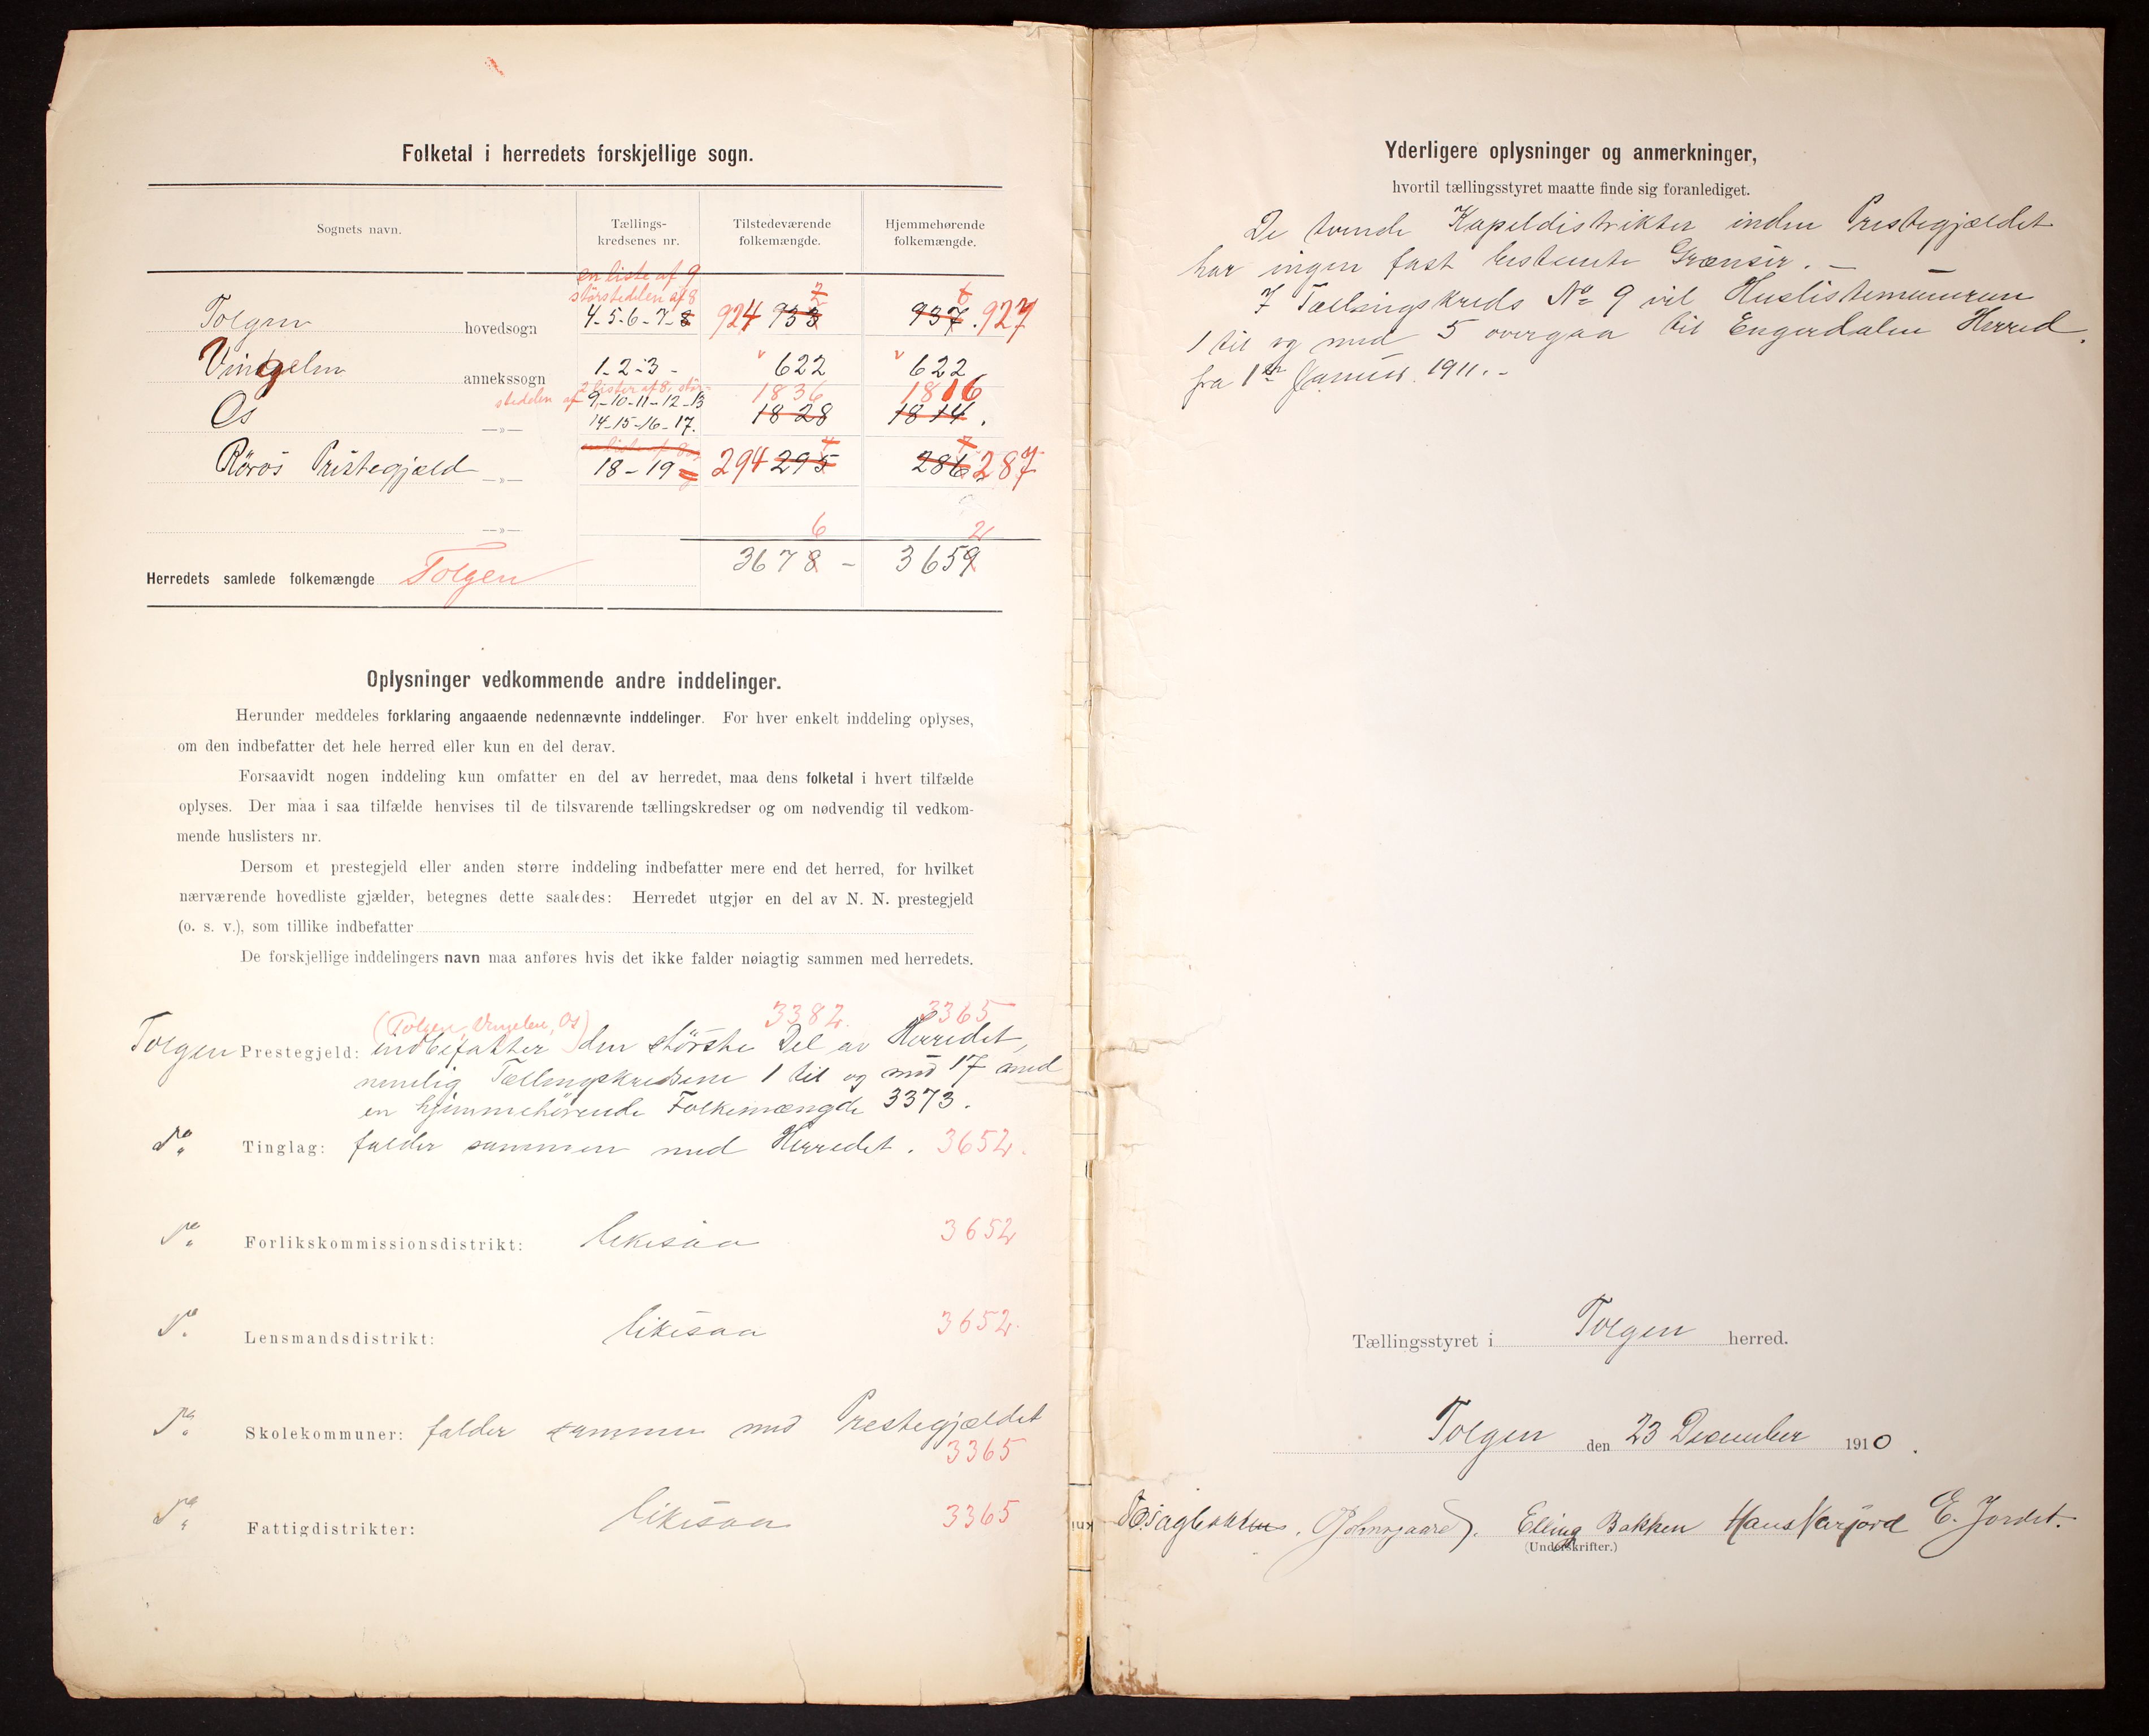 Folketal i herredets forskjellige sogn.
Sognets navn.
Tællings-
kredsenes nr.
Tilstedeværende
folkemængde.
Hjemmehørende
folkemængde.
en liste af 9
størstedelen af 8
Tolgen hovedsogn 4-5-6-7-8 924 933 937. 927
Vingelen annekssogn 1-2-3- 622 622
2 lister af 8, stør-
stedelen af 9-10-11-12-13 1836 1816
Os —»— 14-15-16-17. 1828 1814.
en liste af 8
Röros Prestegjæld —»— 18-19 294 295 286 287
—»— 6 2
Herredets samlede folkemængde Tolgen 3678 - 3659
Oplysninger vedkommende andre inddelinger.
Herunder meddeles forklaring angaaende nedennævnte inddelinger. For hver enkelt inddeling oplyses,
om den indbefatter det hele herred eller kun en del derav.
Forsaavidt nogen inddeling kun omfatter en del av herredet, maa dens folketal i hvert tilfælde
oplyses. Der maa i saa tilfælde henvises til de tilsvarende tællingskredser og om nødvendig til vedkom-
mende huslisters nr.
Dersom et prestegjeld eller anden større inddeling indbefatter mere end det herred, for hvilket
nærværende hovedliste gjælder, betegnes dette saaledes: Herredet utgjør en del av N. N. prestegjeld
(o. s. v.), som tillike indbefatter
De forskjellige inddelingers navn maa anføres hvis det ikke falder nøiagtig sammen med herredets.
(Tolgen, Vingelen, Os) 3382. 3365
Tolgen Prestegjeld: indbefatter den störste Del av Herredet,
nemlig Tællingskredsene 1 til og med 17 med
en hjemmehörende Folkemængde 3373.
do Tinglag: falder sammen med Herredet. 3652.
do Forlikskommissionsdistrikt: likesaa 3652
do Lensmandsdistrikt: likesaa 3652.
do Skolekommuner: falder sammen med Prestegjældet
3365
do Fattigdistrikter: likesaa 3365
Yderligere oplysninger og anmerkninger,
hvortil tællingsstyret maatte finde sig foranlediget.
De tvende Kapeldistrikter inden Prestegjældet
har ingen fast bestemte Grænser. —
I Tællingskreds No 9 vil Huslistenumrene
1 til og med 5 overgaa til Engerdalen Herred
fra 1ste Januar 1911. -
Tællingsstyret i Tolgen herred.
Tolgen den 23 December 1910.
Elling Bakken Hans E. Jordet.
(Underskrifter.)